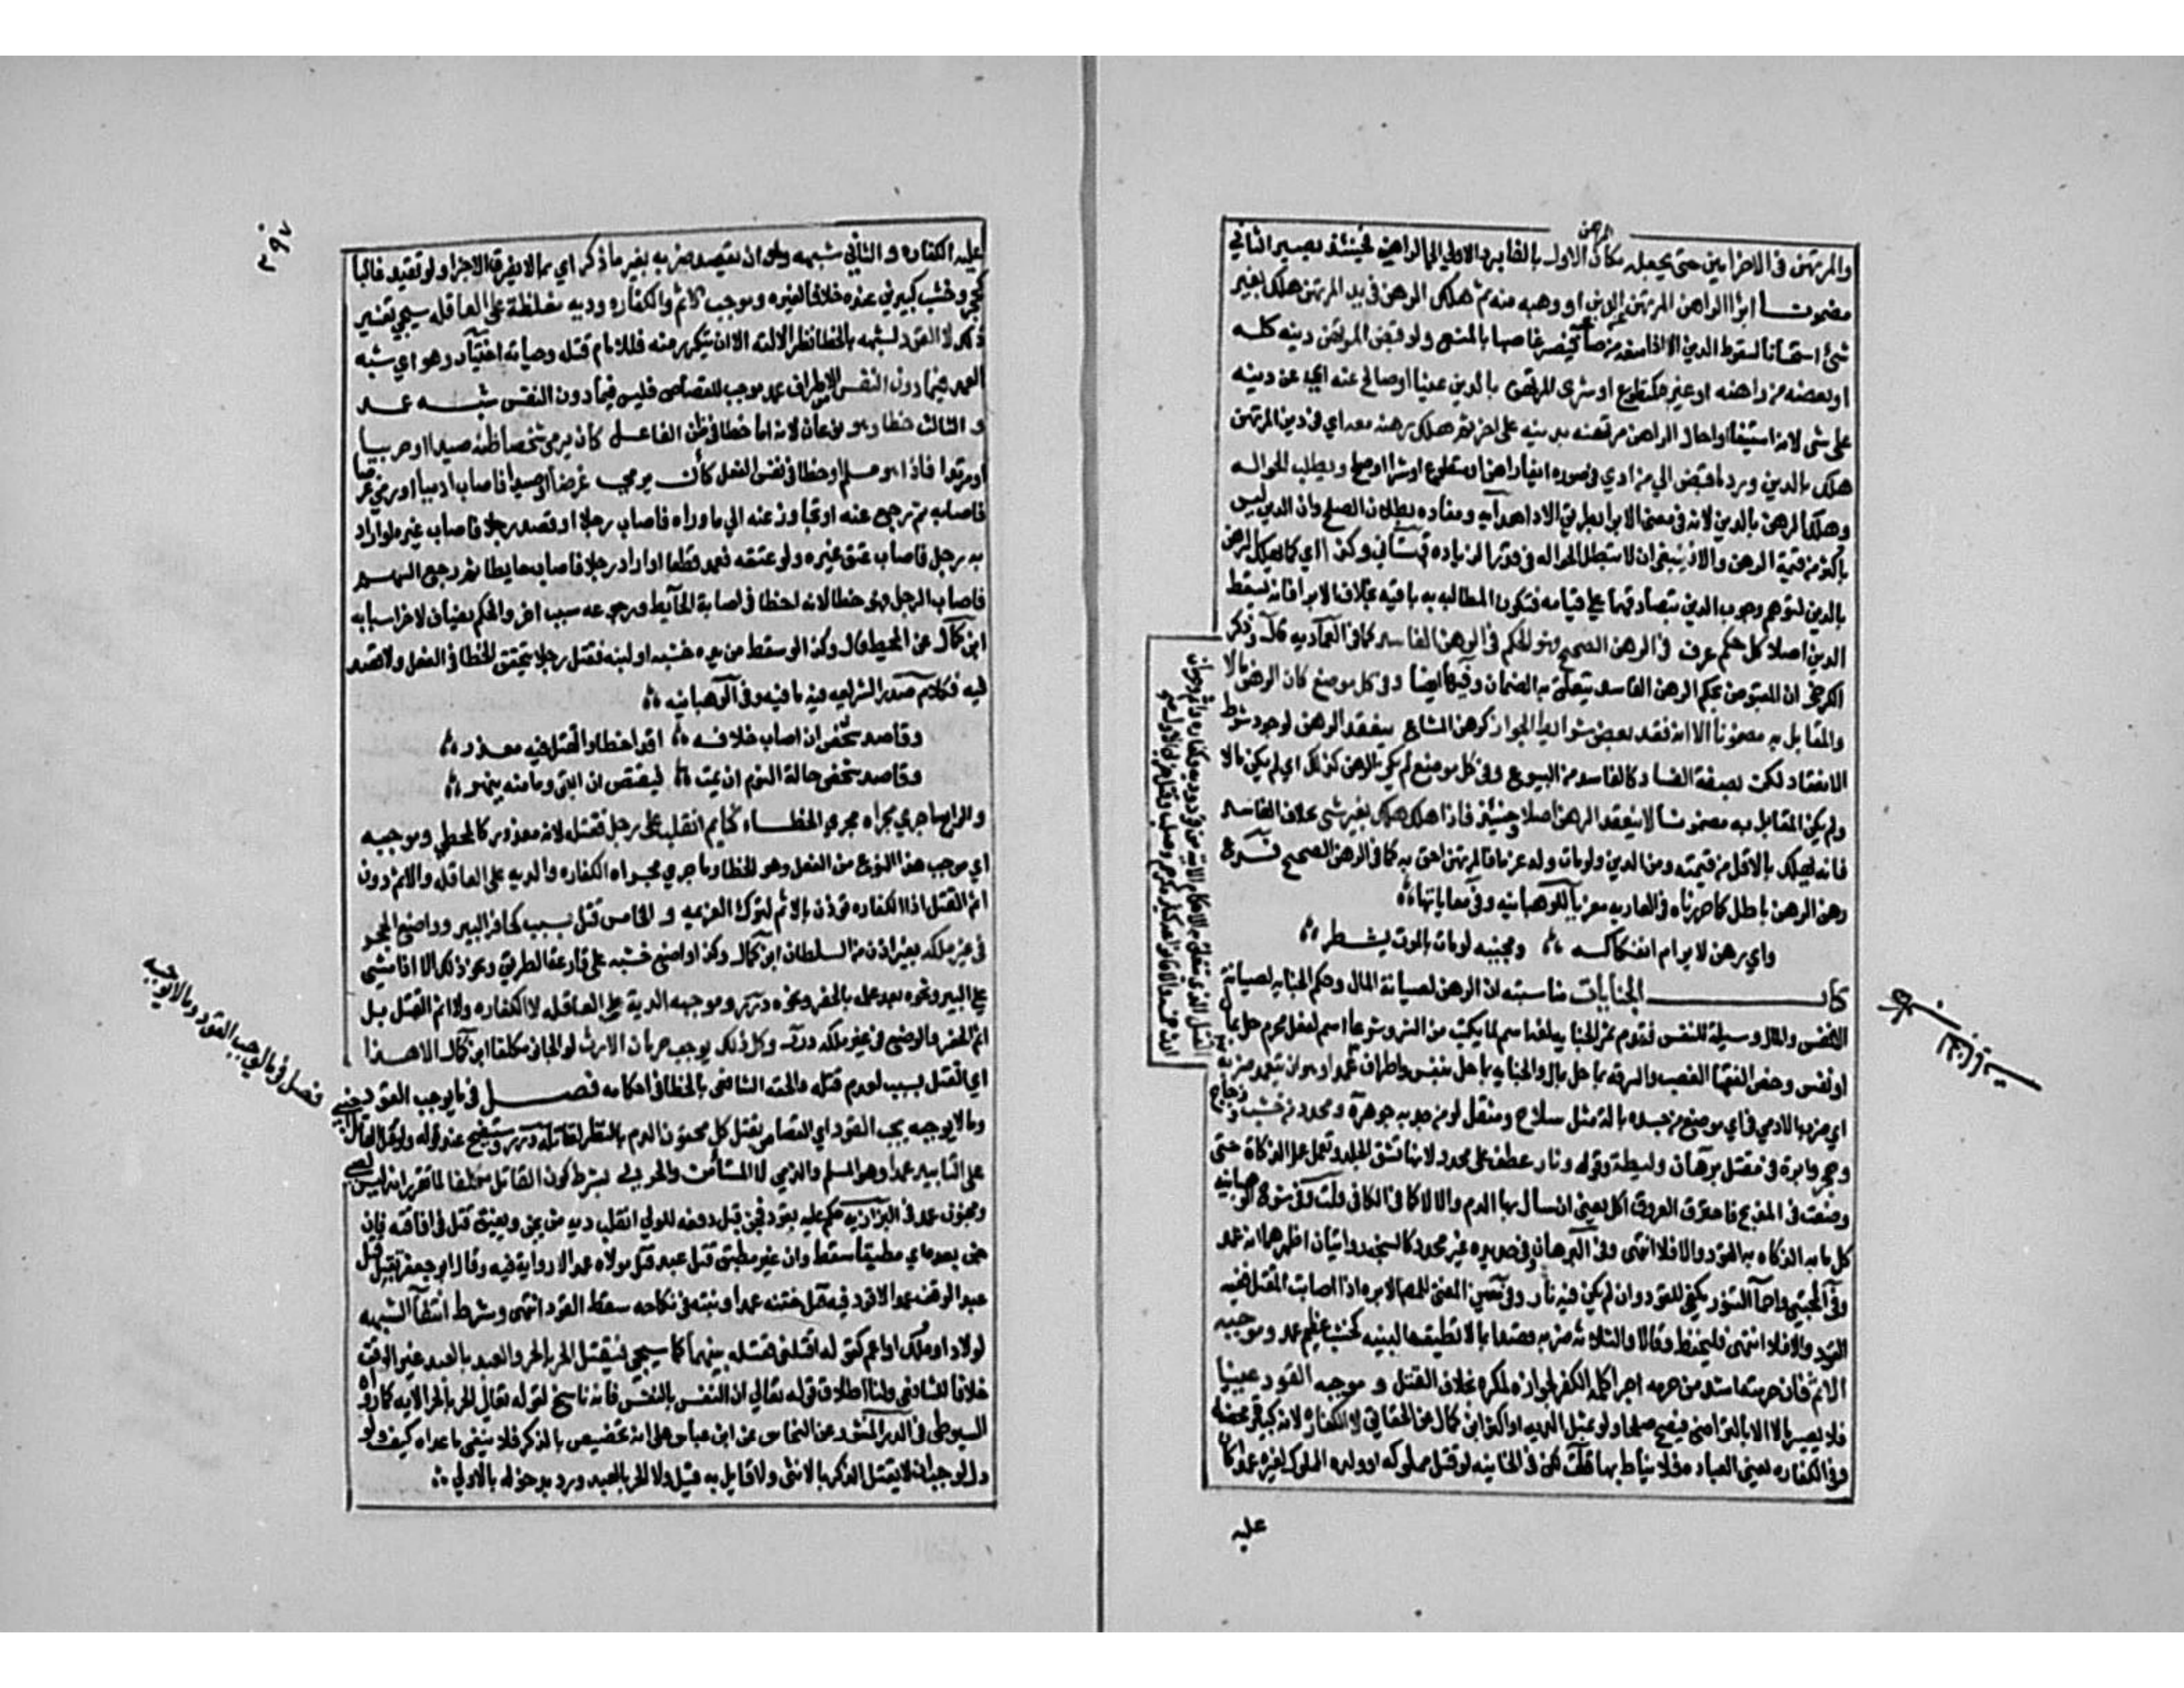 الرهن
والمرتهن في الاخر امين حتى يجعله مكان الاول بالغا برد الاول الى الراهن فحينئذ يصير الثاني
مضمونا ابرأ الراهن المرتهن الدين او وهبه منه ثم هلك الرهن في يد المرتهن هلك بغير
شئ استحسانا لسقوط الدين الا اذا منعه من صاحبه فيصير غاصبا بالمنع ولو قبض المرتهن دينه كله
او بعضه من راهنه او غيره كمتطوع او شرى المرتهن بالدين عينا او صالح عنه اي عن دينه
على شئ لانه استيفا او احال الراهن مرتهنه بدينه على اخر ثم هلك رهنه معه اي في دين المرتهن
هلك بالدين ورد ما قبض الى من ادى في صورة ايفا راهن او متطوع او شرا او صلح وبطلت الحواله
وهلك الرهن بالدين لانه في معنى الابرا بطريق الادا هدايه ومفاده بطلان الصلح وان الدين ليس
باكثر من قيمة الرهن والا فينبغي ان لا تبطل الحواله في قدر الزياده قهستاني وكذا اي كما يهلك الرهن
بالدين لو توهم وجوب الدين بتصادقهما على قيامه فتكون المطالبه به باقيه بخلاف الابرا فانه يسقط
الدين اصلا كل حكم عرف في الرهن الصحيح فهو الحكم في الرهن الفاسد كما في العماديه قال وذكر
الكرخي ان المقبوض بحكم الرهن الفاسد يتعلق به الضمان وفيها ايضا وفي كل موضع كان الرهن مالا
والمقابل به مضمونا الا انه فقد بعض شرائط الجواز كرهن المشاع ينعقد الرهن لوجود شرط
الانعقاد لكن بصفة الفساد كالفاسد من البيوع وفي كل موضع لم يكن الرهن كذلك اي لم يكن مالا
ولم يكن المقابل به مضمونا لا ينعقد الرهن اصلا وحينئذ فاذا هلك هلك بغير شئ بخلاف الفاسد
فانه يهلك بالاقل من قيمته ومن الدين ولو مات وله غرما فالمرتهن احق به كما في الرهن الصحيح فروع
رهن الرهن باطل كما حررناه في العاريه معزيا للوهبانيه وفي معاياتها
واي رهن لا يرام انفكاكه ومجنيه لو مات بالموت يشطر
كتاب الجنايات مناسبته ان الرهن لصيانة المال وحكم الجنايه لصيانة
الانفس والمال وسيلة للنفس فقدم ثم الجنايه لغة اسم لما يكتسب من الشر وشرعا اسم لفعل محرم حل بمال
او نفس وخص الفقها الغصب والسرقه بما حل بمال والجنايه بما حل بنفس واطراف عمد او هو ان يتعمد ضربه
اي ضرب الادمي في اي موضع من جسده بالة مثل سلاح ومثقل لو من حديد جوهرة ومحدد من خشب وزجاج
وحجر وابرة في مقتل برهان وليطة وقوله ونار عطف على محدد لانها تشق الجلد وتعمل عمل الذكاة حتى
وضعت في المذبح فاحرقت العروق اكل يعني ان سال بها الدم والا لا كما في الكافي قلت وفي شرح الوهبانيه
كل ما به الذكاه به القود والا فلا انتهى وفي البرهان وفي حديده غير محدد كالسنجه روايتان اظهرهما انه عمد
وفي المجتبى واحما التنور يكفي للقود وان لم يكن فيه نار وفي معين المفتي للمص الابره اذا اصابت المقتل ففيه
القود والا فلا انتهى فليحفظ وقالا والثلاثه ضربه قصدا بما لا تطيقه البنيه كخشب عظيم عمد وموجبه
الاثم فان حرمته اشد من حرمه اجرا كلمة الكفر لجوازه لمكره بخلاف القتل و موجبه القود عينا
فلا يصير مالا الا بالتراضي فيصح صلحا ولو بمثل الديه او اكثر ابن كمال عن الحقايق لا الكفاره لانه كبيرة محضة
وفي الكفاره معنى العباده فلا يناط بها قلت لكن في الخانيه لو قتل مملوكه او ولده المملوك لغيره عمدا كان
عليه
٣٩٧
عليه الكفاره و الثاني شبهه وهو ان يقصد ضربه بغير ما ذكر اي بما لا يفرق الاجزا ولو تقيد غالبا
كحجر وخشب كبيرين عنده خلافا لغيره وموجبه الاثم والكفاره وديه مغلظة على العاقله سيجي تفسير
ذلك لا القود لشبهه بالخطا نظرا لالته الا ان يتكرر منه فللامام قتله سياسه اختيار وهو اي شبه
العمد فيما دون النفس من الاطراف عمد موجب للقصاص فليس فيما دون النفس شبه عمد
و الثالث خطا وهو نوعان لانه اما خطا في ظن الفاعل كان يرمي شخصا ظنه صيدا او حربيا
او مرتدا فاذا هو مسلم او خطا في نفس الفعل كأن يرمي غرضا او صيدا فاصاب ادميا او رمى غرضا
فاصابه ثم رجع عنه او تجاوز عنه الى ما وراه فاصاب رجلا او قصد رجلا فاصاب غيره او اراد
يد رجل فاصاب عنق غيره ولو عنقه فعمد قطعا او اراد رجلا فاصاب حايطا ثم رجع السهم
فاصاب الرجل فهو خطا لانه اخطا في اصابة الحايط ورجوعه سبب اخر والحكم يضاف لاخر اسبابه
ابن كمال عن المحيط قال وكذا لو سقط من يده خشبه او لبنه فقتل رجلا يتحقق الخطا في الفعل ولا قصد
فيه فكلام صدر الشريعه فيه ما فيه وفي الوهبانيه
وقاصد شخص ان اصاب خلافه فذا خطا والقتل فيه معذر
وقاصد شخص حالة النوم ان يمت فيقتص ان ابقى دما منه ينهر
و الرابع ما جرى مجراه مجرى الخطاء كنايم انقلب على رجل فقتله لانه معذور كالمخطي وموجبه
اي موجب هذا النوع من الفعل وهو الخطا وما جرى مجراه الكفاره والديه على العاقله والاثم دون
اثم القتل اذ الكفاره تؤذن بالاثم لترك العزيمه و الخامس قتل بسبب كحافر البير وواضع الحجر
في غير ملكه بغير اذن من السلطان ابن كمال وكذا واضع خشبه على قارعة الطريق ونحو ذلك الا اذا مشى
على البير ونحوه بعد علمه بالحفر ونحوه درر وموجبه الدية على العاقله لا الكفاره ولا اثم القتل بل
اثم الحفر والوضع في غير ملكه درر وكل ذلك يوجب حرمان الارث لو الجاني مكلفا ابن كمال الا هذا
اي القتل بسبب لعدم قتله والحقه الشافعي بالخطا في احكامه فصل فيما يوجب القود
وما لا يوجبه يجب القود اي القصاص بقتل كل محقون الدم بالنظر لقاتله درر وسيتضح عند قوله
على التابيد عمدا وهو المسلم والذمي لا المستأمن والحربي بشرط كون القاتل مكلفا لما تقرر انه ليس لصبي
ومجنون عمد في البزازيه حكم عليه بقود فجن قبل دفعه للولي انقلب ديه من يجن ويفيق قتل في افاقته فان
جن بعده اي مطبقا سقط وان غير مطبق قتل عبد قتل مولاه عمدا لا رواية فيه وقال ابو جعفر يقتل قتل
عبد الوقف عمدا لا قود فيه قتل ختنه عمدا وبنته في نكاحه سقط القود انتهى وشرط انتفا الشبهه
كولاد او ملك او اعم كقوله اقتلني فقتله بينهما كما سيجي فيقتل الحر بالحر والعبد بالعبد غير الوقف
خلافا للشافعي ولنا اطلاق قوله تعالى ان النفس بالنفس فانه ناسخ لقوله تعالى الحر بالحر الايه كما رواه
السيوطي في الدر المنثور عن النحاس عن ابن عباس على انه تخصيص بالذكر فلا ينفي ما عداه كيف ولو
دل لوجب ان لا يقتل الذكر بالانثى ولا قايل به قيل ولا الحر بالعبد ورد بدخوله بالاولى
فصل فيما يوجب القود وما لا يوجبه